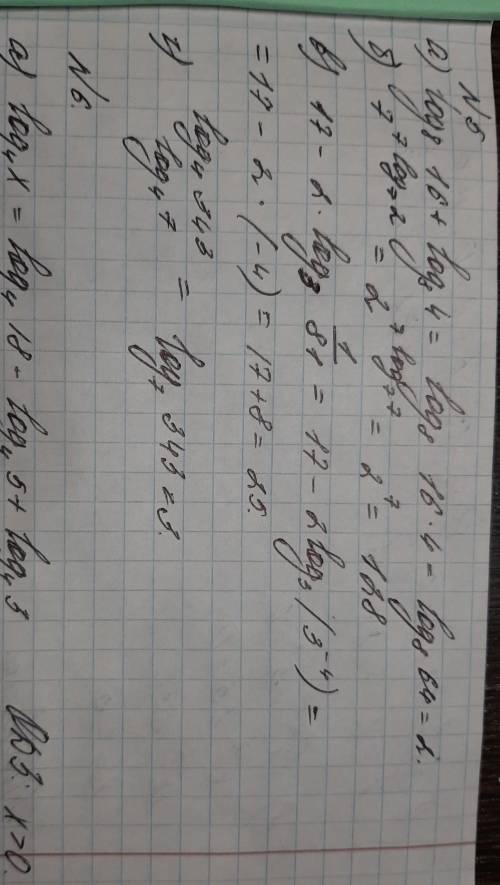 N5
а) log₈ 16 + log₈ 4 = log₈ 16 · 4 = log₈ 64 = 2.
б) 7^(7 log₇ 2) = 2^(7 log₇ 7) = 2⁷ = 128
в) 17 - 2 · log₃ 1/81 = 17 - 2 log₃ (3⁻⁴) =
= 17 - 2 · (-4) = 17 + 8 = 25.
г) log₄ 343 / log₄ 7 = log₇ 343 = 3.
N6.
а) log₄ x = log₄ 18 - log₄ 5 + log₄ 3 ОДЗ: x > 0.